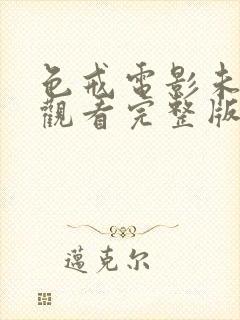 色戒電影未
觀看完整版
邁克尔